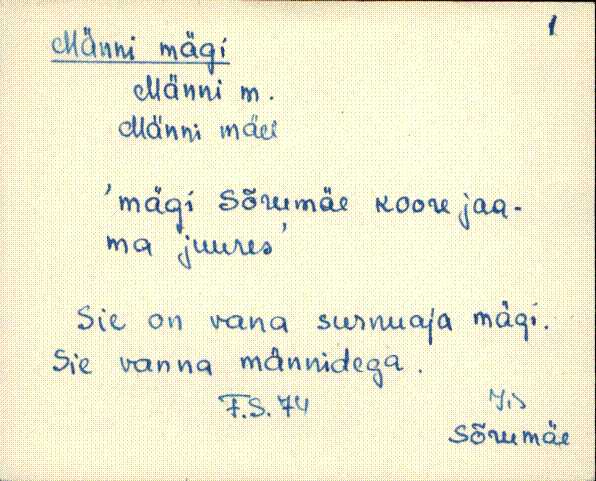 1
Männi mägi
Männi m.
Männi mäel
'mägi Sõrumäe koorejaa-
ma juures'
Sie on vana surnuaja mägi.
Sie vanna männidega.
F.S. 74
Jis
Sõrumäe